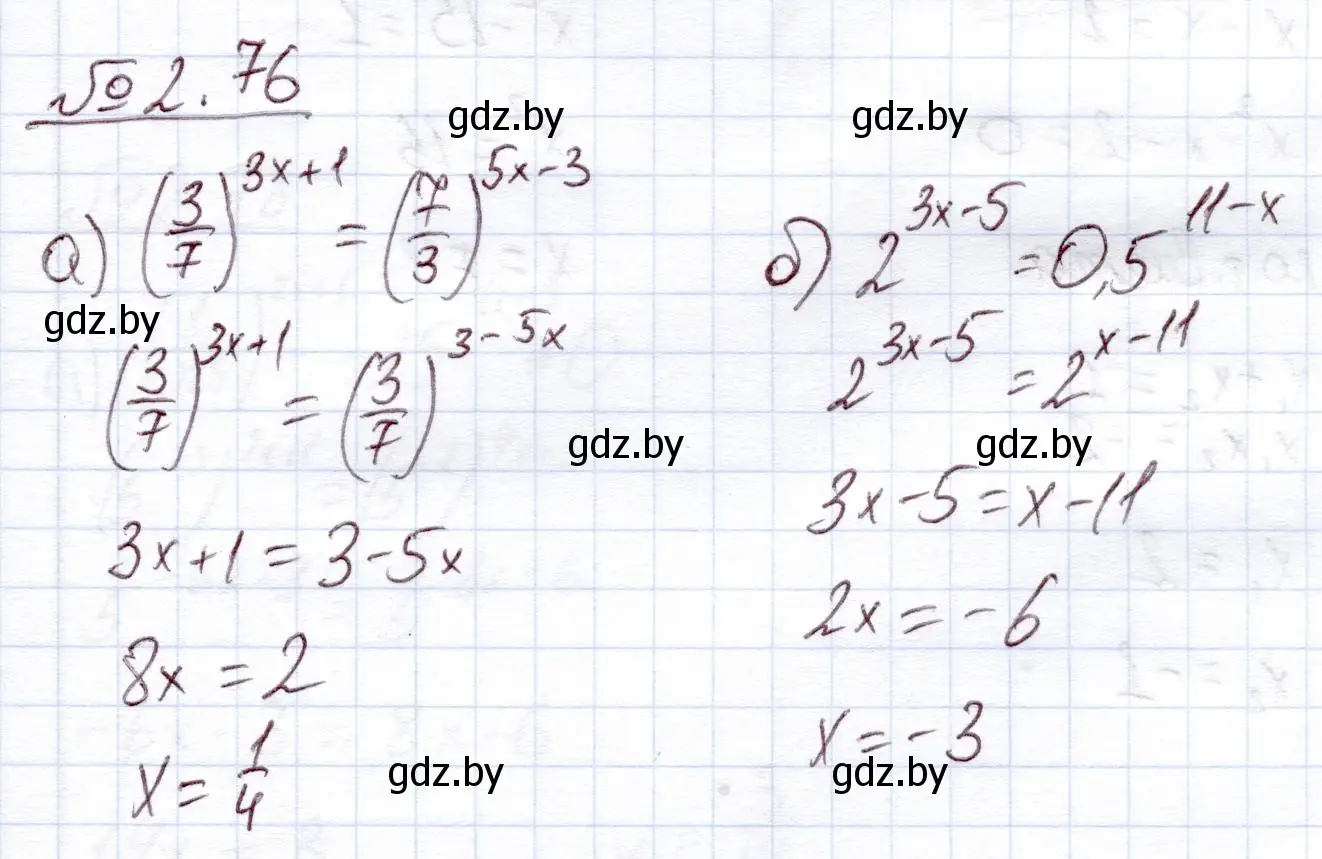 № 2.76
а) (3/7)^(3x+1) = (7/3)^(5x-3)
(3/7)^(3x+1) = (3/7)^(3-5x)
3x+1=3-5x
8x=2
x=1/4
б) 2^(3x-5) = 0,5^(11-x)
2^(3x-5) = 2^(x-11)
3x-5=x-11
2x=-6
x=-3
gdz.by
gdz.by
gdz.by
gdz.by
gdz.by
gdz.by
gdz.by